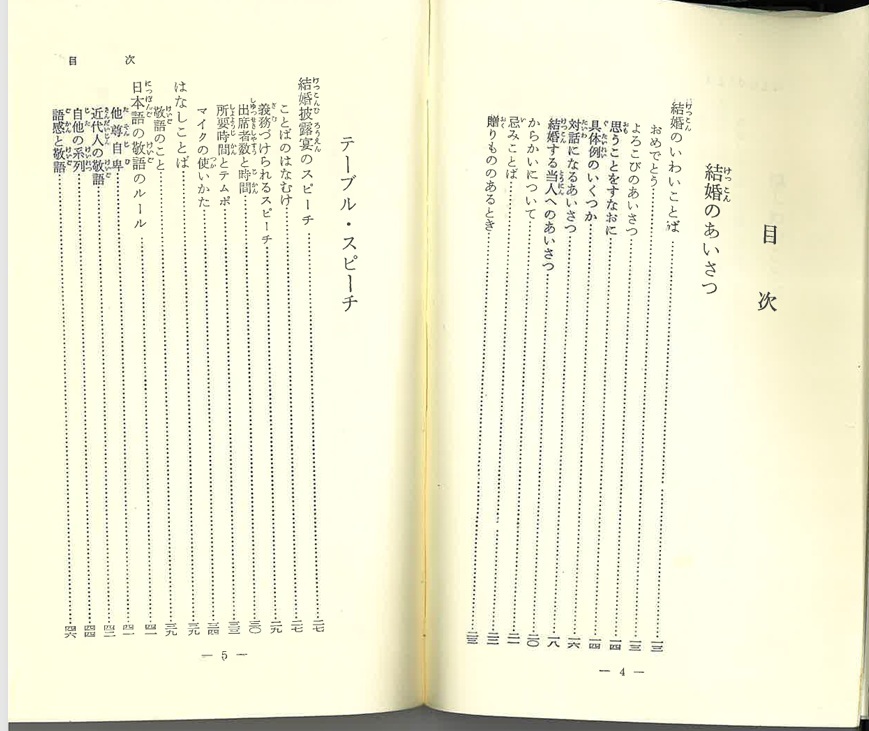 目次
結婚のあいさつ
結婚のいわいことば……一三
おめでとう……一三
よろこびのあいさつ……一四
思うことをすなおに……一四
具体例のいくつか……一六
対話になるあいさつ……一八
結婚する当人へのあいさつ……二〇
からかいについて……二一
忌みことば……二二
贈りもののあるとき……二三
— 4 —
目次
テーブル・スピーチ
結婚披露宴のスピーチ……二七
ことばのはなむけ……二七
義務づけられるスピーチ……二九
出席者数と時間……三〇
所要時間とテムポ……三三
マイクの使いかた……三四
はなしことば……三九
敬語のこと……三九
日本語の敬語のルール……四一
他尊自卑……四一
近代人の敬語……四二
自他の系列……四四
語感と敬語……四六
— 5 —